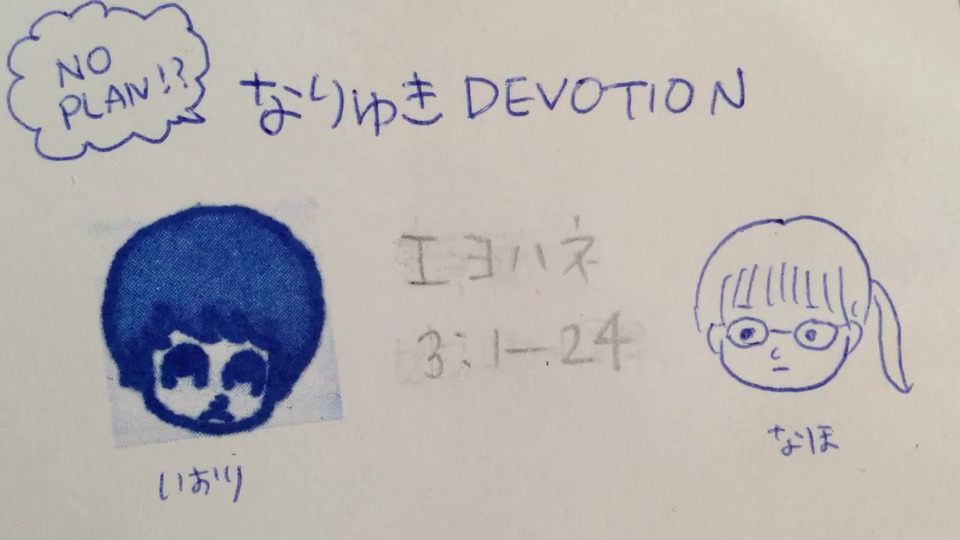 NO
PLAN!?
なりゆき DEVOTION
Iヨハネ
3:1-24
いおり
なほ